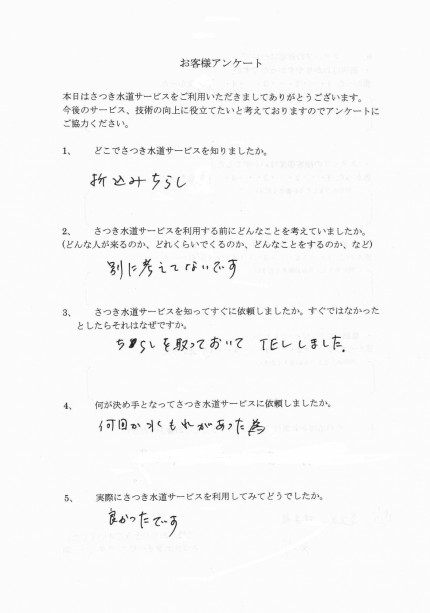 お客様アンケート
本日はさつき水道サービスをご利用いただきましてありがとうございます。
今後のサービス、技術の向上に役立てたいと考えておりますのでアンケートに
ご協力ください。
1、 どこでさつき水道サービスを知りましたか。
折込みちらし
2、 さつき水道サービスを利用する前にどんなことを考えていましたか。
(どんな人が来るのか、どれくらいでくるのか、どんなことをするのか、など)
別に考えてないです
3、 さつき水道サービスを知ってすぐに依頼しましたか。すぐではなかった
としたらそれはなぜですか。
ちらしを取っておいて TELしました。
4、 何が決め手となってさつき水道サービスに依頼しましたか。
何回か水もれがあった為
5、 実際にさつき水道サービスを利用してみてどうでしたか。
良かったです